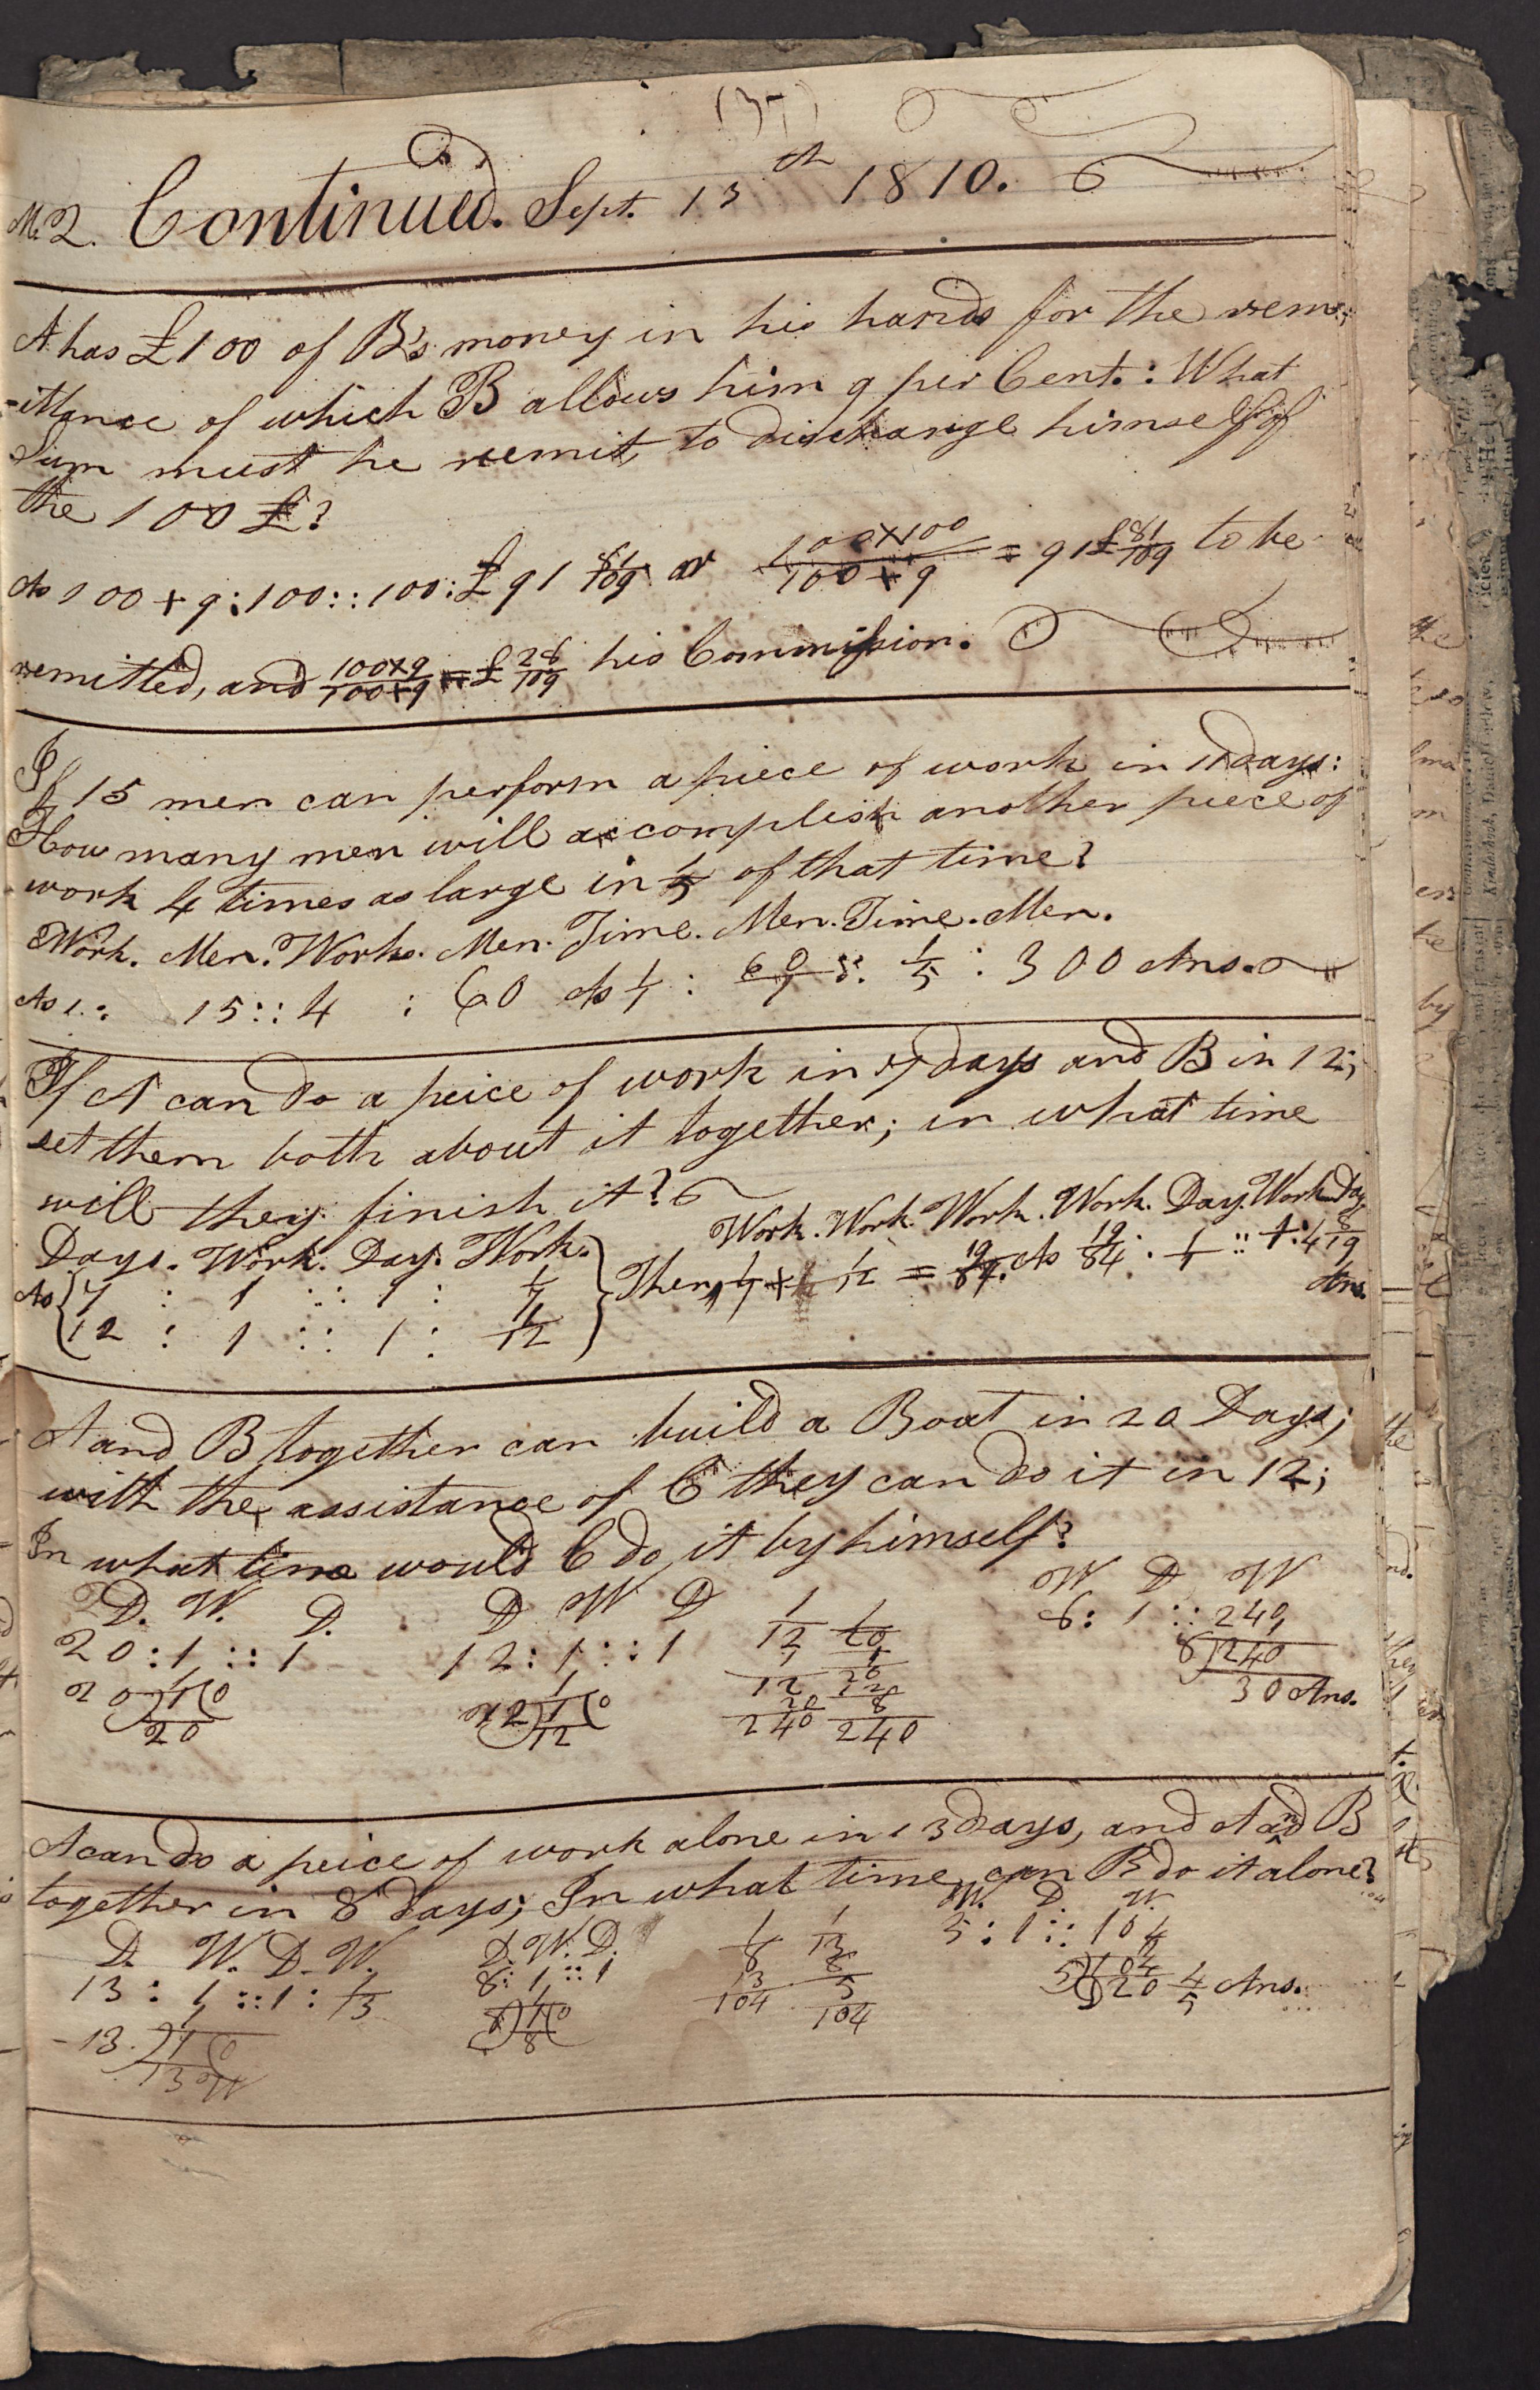 (37)
M. 2. Continued. Sept. 13th 1810.
A has £100 of B's money in his hands for the rem-
-ittance of which B allows him 9 per Cent.: What
Sum must he remit, to discharge himself of
the 100 £?
As 100+9:100::100:£91 81/109 or 100×100/100+9 = 91£ 81/109 to be
remitted, and 100×9/100+9 = £ 28/109 his Commission.
If 15 men can perform a piece of work in 11 days:
How many men will accomplish another piece of
work 4 times as large in 1/5 of that time?
Work. Men. Work. Men. Time. Men. Time. Men.
As 1 : 15 :: 4 : 60 As 1/1 : 60/1 :: 1/5 : 300 Ans.
If A can do a peice of work in 7 days and B in 12;
set them both about it together; in what time
will they finish it?
Work. Work. Work. Work. Day. Work. Day
Days. Work. Day. Work.
As { 7 : 1 :: 1 : 1/7 } Then, 1/7 + 1/12 = 19/84. As 19/84 : 1/1 :: 1 : 4 8/19
12 : 1 :: 1 : 1/12 Ans.
A and B together can build a Boat in 20 Days;
with the assistance of C they can do it in 12;
In what time would C do it by himself?
D. W. D. D W D 1/12 1/20 W D W
20 : 1 :: 1 12 : 1 :: 1 8 : 1 :: 240
20)10(0 12)1(0 12 20 8)240
20 12 20/240 8/240 30 Ans.
A can do a peice of work alone in 13 days, and A and B
together in 8 days; In what time can B do it alone?
D. W. D. W. D. W. D. 1/8 1/13 W. D. W.
13 : 1 :: 1 : 1/13 8 : 1 :: 1 5 : 1 :: 104
13)1(0 8)1(0 13/104 8 5/104 5)104
13 8 20 4/5 Ans.